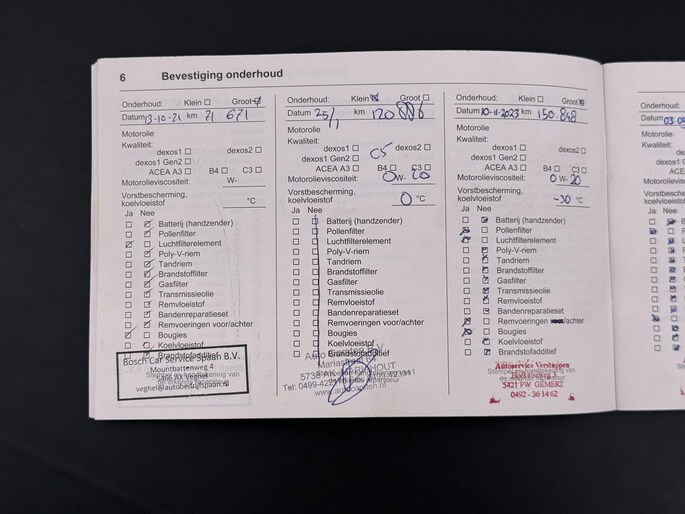 6 Bevestiging onderhoud
Onderhoud: Klein Groot
Datum 13-10-21 km 71 671
Motorolie
Kwaliteit:
dexos1 dexos2
dexos1 Gen2
ACEA A3 B4 C3
Motorolieviscositeit: W-
Vorstbescherming,
koelvloeistof °C
Ja Nee
Batterij (handzender)
Pollenfilter
Luchtfilterelement
Poly-V-riem
Tandriem
Brandstoffilter
Gasfilter
Transmissieolie
Remvloeistof
Bandenreparatieset
Remvoeringen voor/achter
Bougies
Koelvloeistof
Brandstofadditief
Bosch Car Service Spaan B.V.
Mountbattenweg 4
5466 AX Veghel
veghel@autobedrijfspaan.nl
Onderhoud: Klein Groot
Datum 25/1 km 120
Motorolie
Kwaliteit: C5
dexos1 dexos2
dexos1 Gen2
ACEA A3 B4 C3
Motorolieviscositeit: 0 W- 20
Vorstbescherming,
koelvloeistof 0 °C
Ja Nee
Batterij (handzender)
Pollenfilter
Luchtfilterelement
Poly-V-riem
Tandriem
Brandstoffilter
Gasfilter
Transmissieolie
Remvloeistof
Bandenreparatieset
Remvoeringen voor/achter
Bougies
Koelvloeistof
Brandstofadditief
B.V.
Tel: 0499-
Onderhoud: Klein Groot
Datum 10-11-2023 km 150.848
Motorolie
Kwaliteit:
dexos1 dexos2
dexos1 Gen2
ACEA A3 B4 C3
Motorolieviscositeit: 0 W- 20
Vorstbescherming,
koelvloeistof -30 °C
Ja Nee
Batterij (handzender)
Pollenfilter
Luchtfilterelement
Poly-V-riem
Tandriem
Brandstoffilter
Gasfilter
Transmissieolie
Remvloeistof
Bandenreparatieset
Remvoeringen /achter
Bougies
Koelvloeistof
Brandstofadditief
Autoservice Verstappen
5421 PW GEMERT
0492 - 36 14 62
Onder
Datum
Motorolie
Kwaliteit:
dexos
dexos1
A
Motorolie
Vorstbesch
koelvloeist
Ja Nee